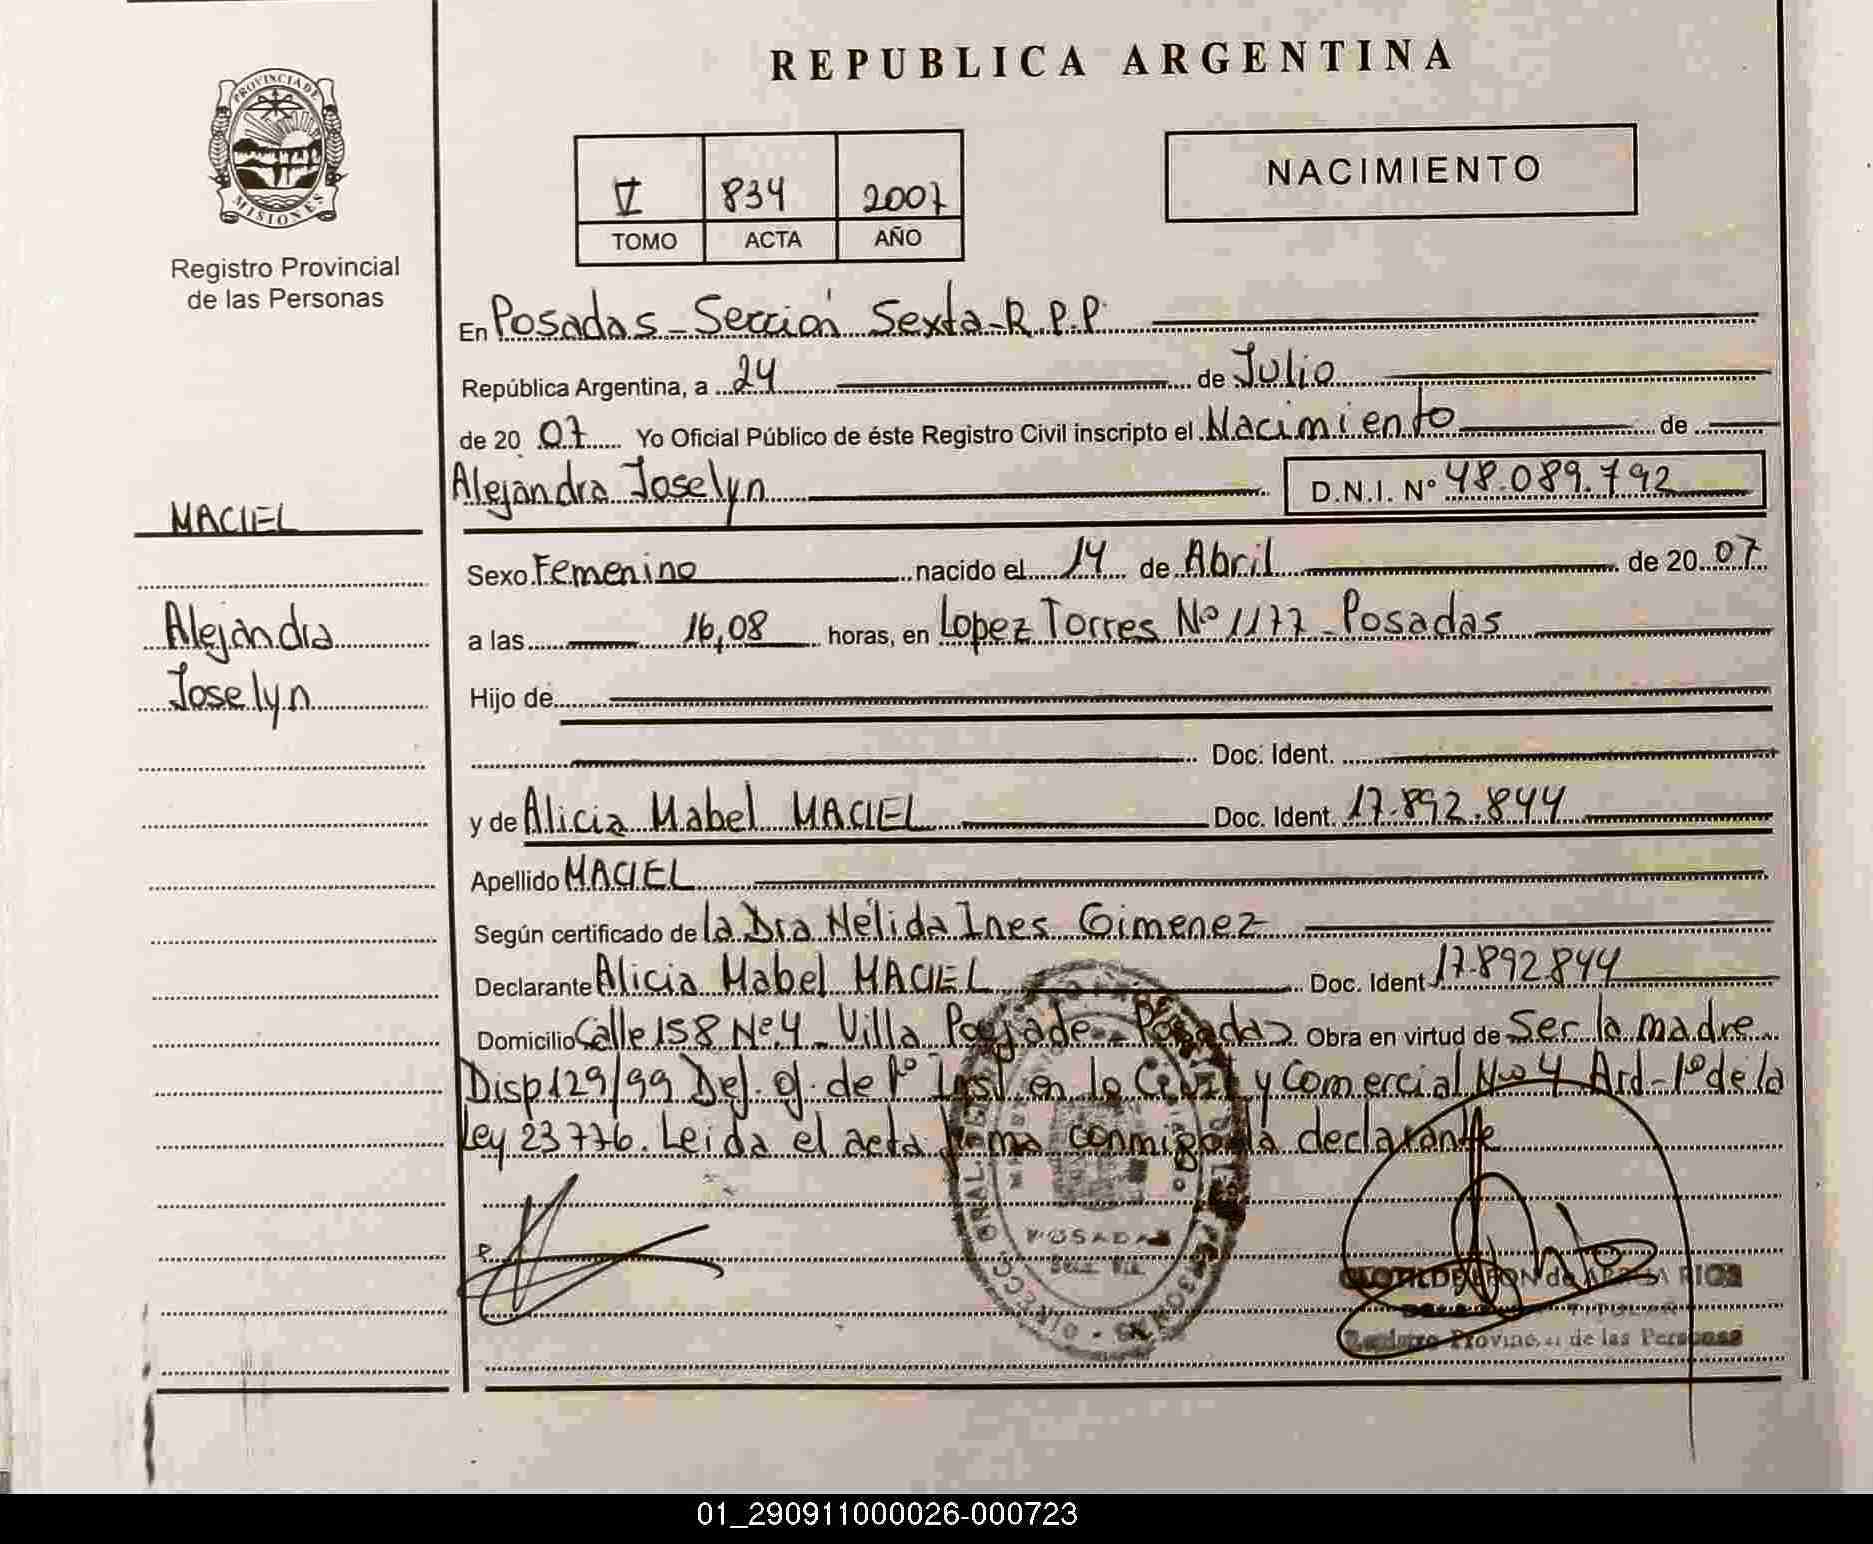 REPUBLICA ARGENTINA
PROVINCIA DE
MISIONES
Registro Provincial
de las Personas
V 834 2007
TOMO ACTA AÑO
NACIMIENTO
En Posadas - Sección Sexta - R.P.P.
República Argentina, a 24 de Julio
de 20 07 Yo Oficial Público de éste Registro Civil inscripto el Nacimiento de
Alejandra Joselyn D.N.I. Nº 48.089.792
MACIEL
Alejandra
Joselyn
Sexo Femenino nacido el 14 de Abril de 20 07
a las 16,08 horas, en Lopez Torres Nº 1177 - Posadas
Hijo de
Doc. Ident.
y de Alicia Mabel MACIEL Doc. Ident. 17.892.844
Apellido MACIEL
Según certificado de la Dra Nélida Ines Gimenez
Declarante Alicia Mabel MACIEL Doc. Ident 17.892.844
Domicilio Calle 158 Nº 4 - Villa Poujade - Posadas Obra en virtud de Ser la madre
Disp 129/99 Def. of. de 1º Inst en lo Civil y Comercial Nro 4 Ard - 1º de la
Ley 23776. Leida el acta firma conmigo la declarante
POSADAS
Registro Provincial de las Personas
01_290911000026-000723